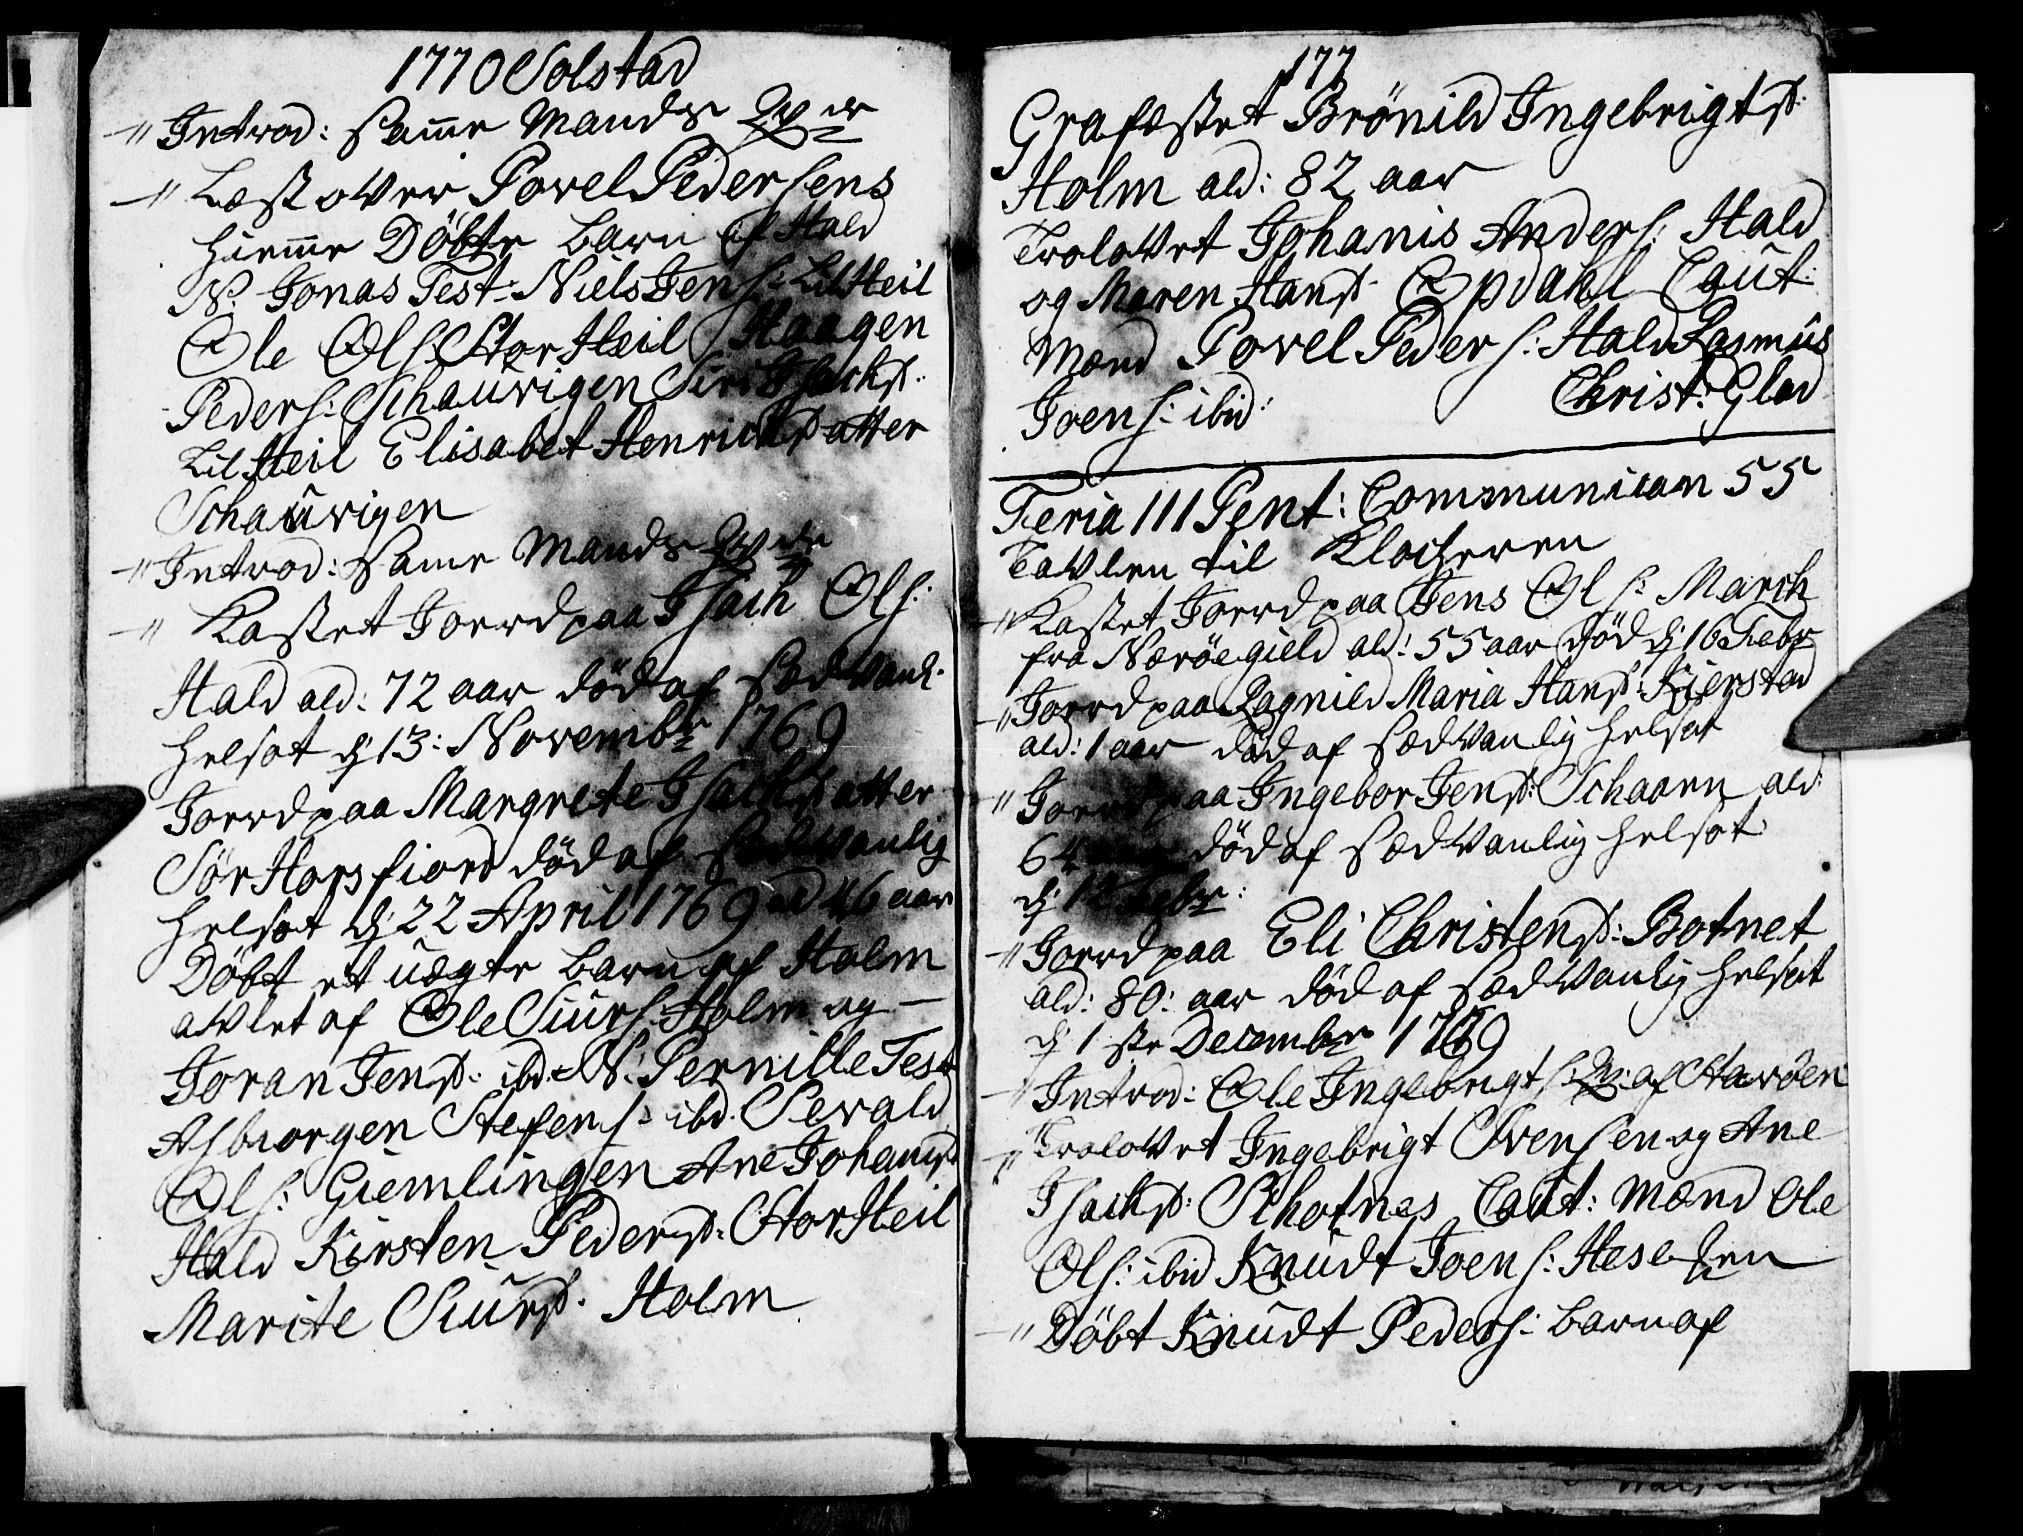 1770 Solstad
Introd: samme Mands Qv
Læst over Povel Pedersens
hiemme Døbte barn af Hald
N. Jonas Test: Niels Jens: Lil Heil
Ole Ols: Stor Heil Haagen
Peders: Schaurigen Siri Isachsd:
Lil Heil Elisabet Henrichsdatter
Schaurigen
Introd: samme Mands Qv
Kastet Jorrd paa Isach Ols:
Hald ald: 72 aar død af sædvanl.
helsot d 13: Novembr 1769
Jorrd paa Margrete Isachsdatter
Sør Horsfiord død af sædvanlig
helsot d 22 April 1769 ald 46 aar
Døbt et uægte barn af Holm
avlet af Ole Siurs: Holm og
Joran Jensd: ibd. N. Pernille Test
Asbiorgen Stefens: ibd. Sevald
Ols: Giemlingen Ane Johansd
Hald Kirsten Pedersd: Stor Heil
Marite Siursd. Holm
177
Grafæstet Brønild Ingebrigtsd:
Holm ald: 82 aar
Trolovet Johanis Anders: Hald
og Maren Hansd. Opdahl Caut:
Mænd Povel Peders: Hald Rasmus
Joens: ibid: Christ: Glad
Feria III Pent: Communican 55
Tavlen til Klocheren
Kastet Jorrd paa Jens Ols: March
fra Nærøe gield ald: 55 aar død d 16 Febr
Jorrd paa Ragnild Maria Hansd: Kierstad
ald: 1 aar død af sædvanlig helsot
Jorrd paa Ingebor Jensd: Schaarn ald:
64 aar død af sædvanlig helsot
d 12 Febr:
Jorrd paa Eli Christensd: Botnet
ald: 80: aar død af sædvanlig helsot
d 1 ste Decembr 1769
Introd: Ole Ingebrigts: Q: af Havøen
Trolovet Ingebrigt Svensen og Ane
Isachsd: Schotnes Caut: Mænd Ole
Ols: ibid Knudt Joens: Hese
Døbt Knudt Peders: barn af